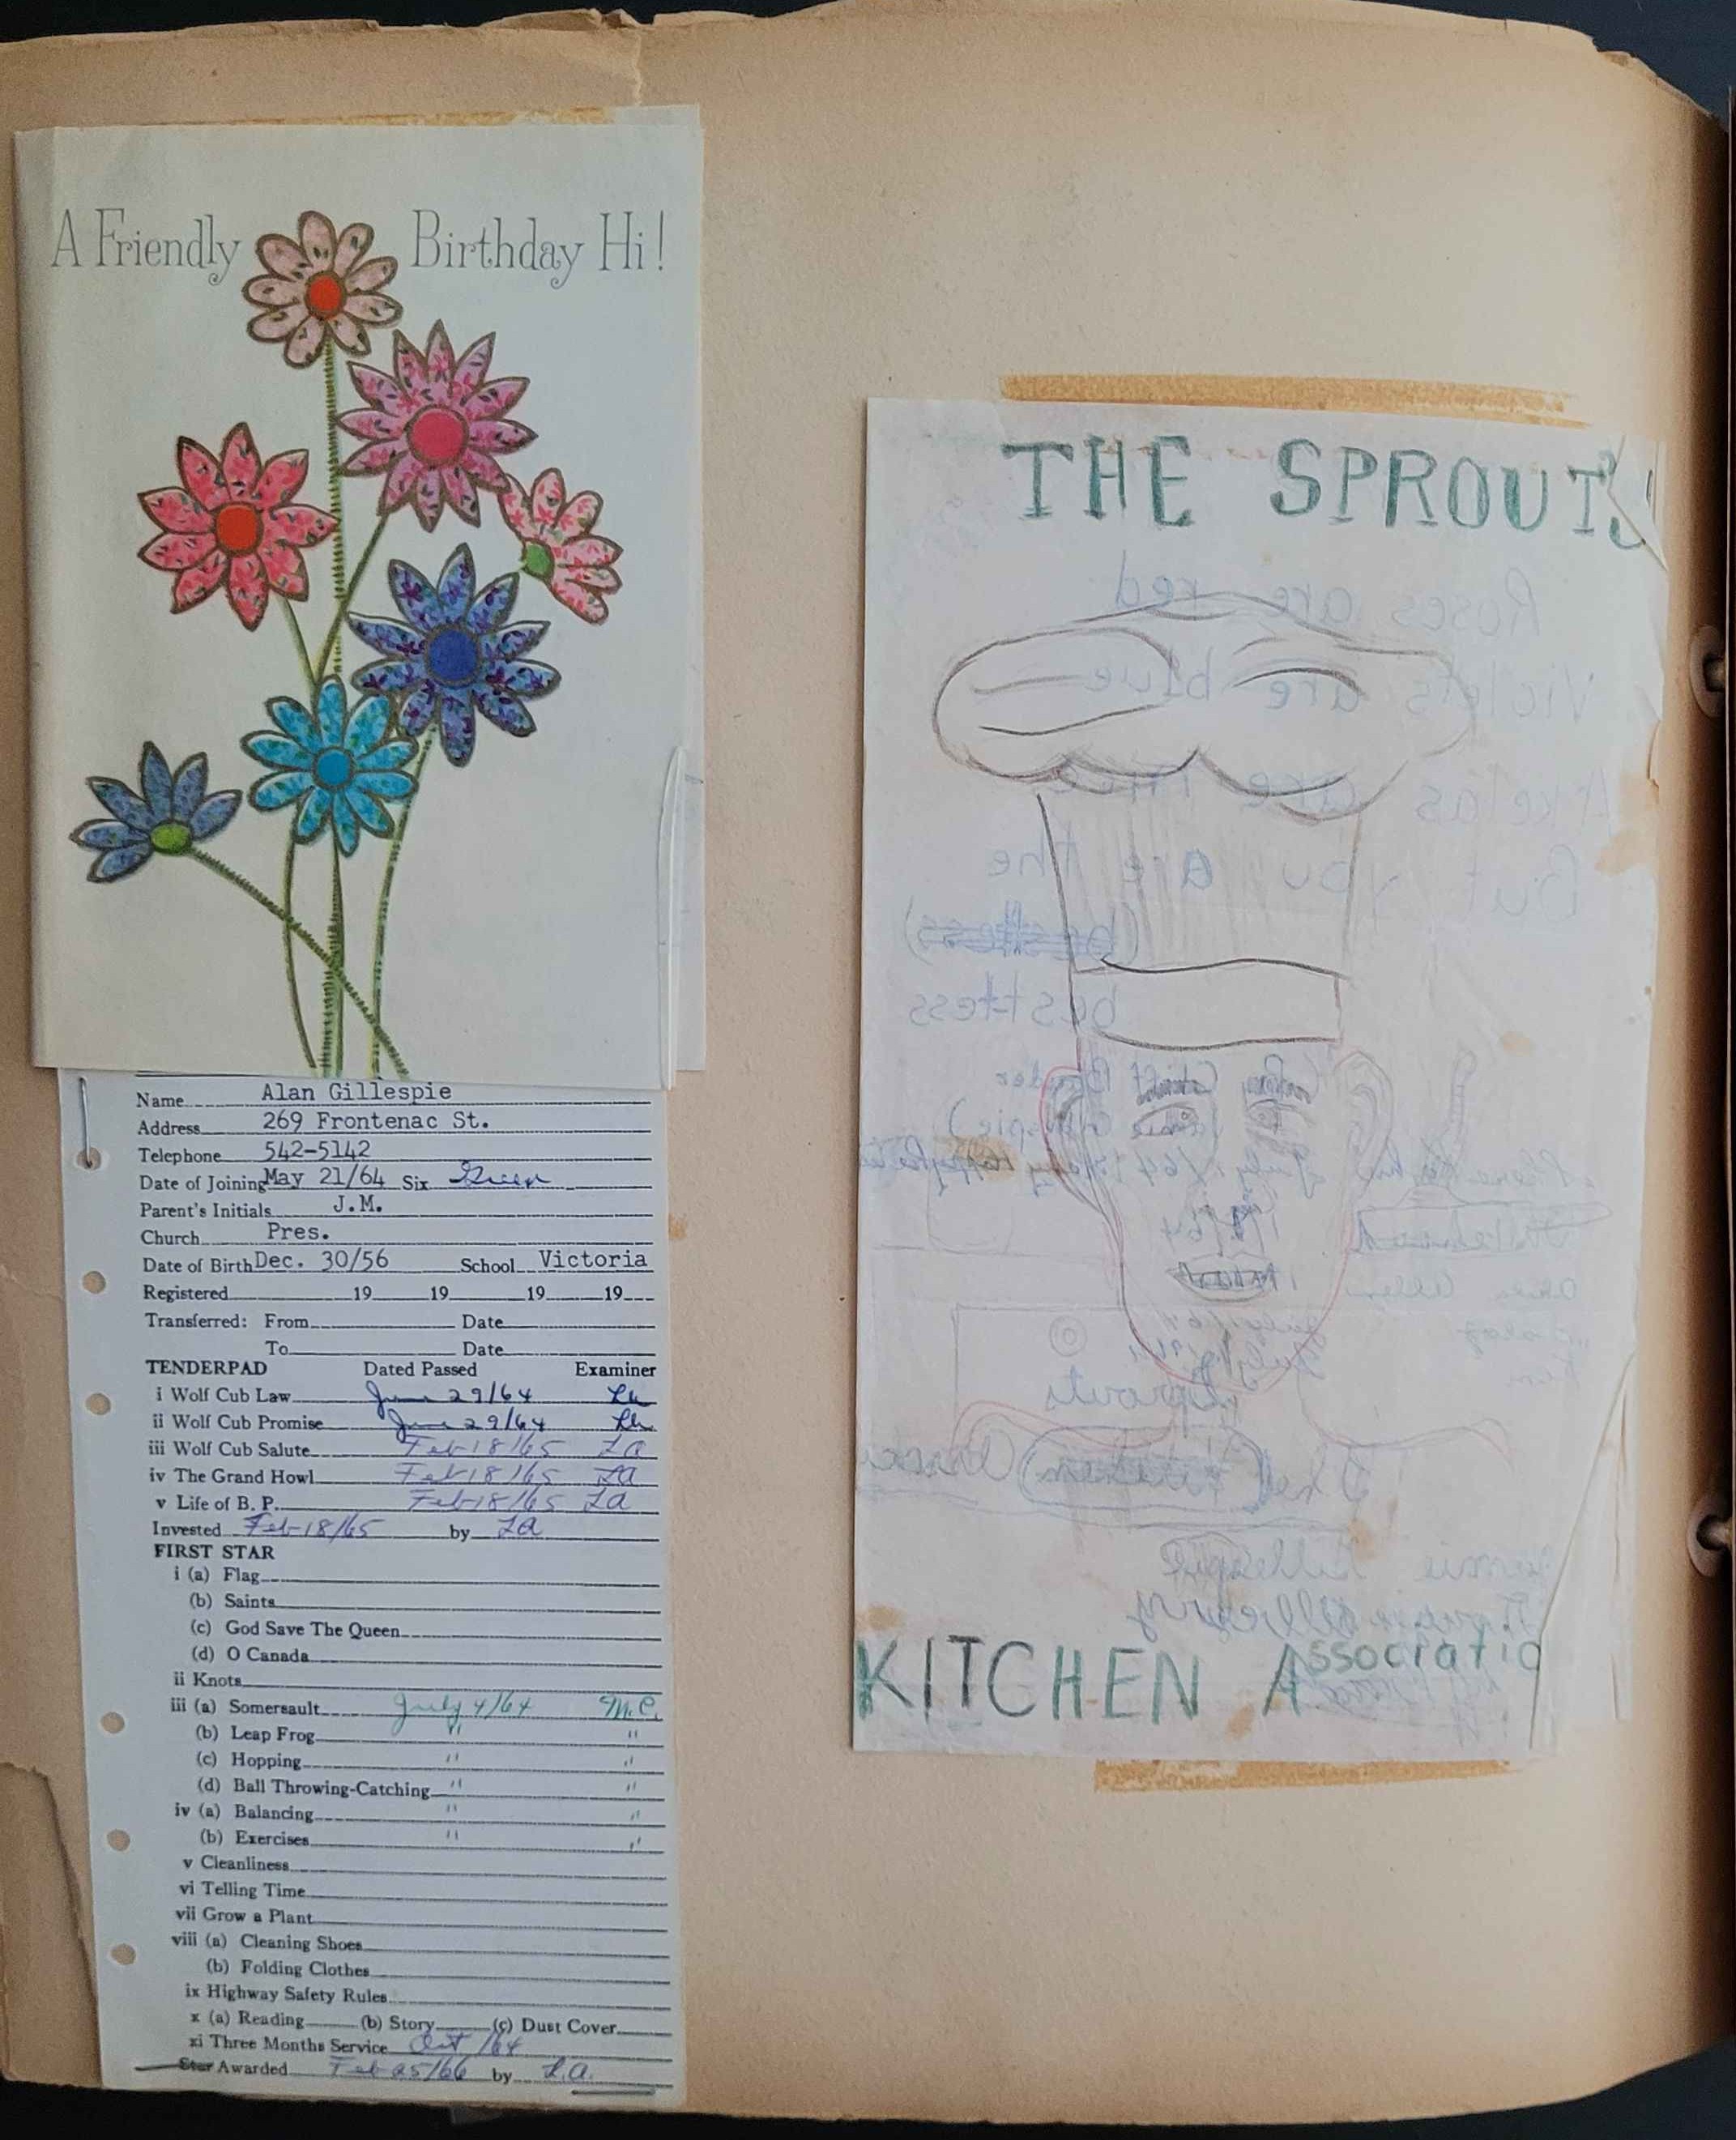 A Friendly Birthday Hi!
Name Alan Gillespie
Address 269 Frontenac St.
Telephone 542-5142
Date of Joining May 21/64 Six Green
Parent's Initials J.M.
Church Pres.
Date of Birth Dec. 30/56 School Victoria
Registered 19 19 19 19
Transferred: From Date
To Date
TENDERPAD Dated Passed Examiner
i Wolf Cub Law June 29/64
ii Wolf Cub Promise June 29/64
iii Wolf Cub Salute Feb 18/65 LA
iv The Grand Howl Feb 18/65 LA
v Life of B. P. Feb 18/65 LA
Invested Feb 18/65 by LA
FIRST STAR
i (a) Flag
(b) Saints
(c) God Save The Queen
(d) O Canada
ii Knots
iii (a) Somersault July 4/64 M.C.
(b) Leap Frog " "
(c) Hopping " "
(d) Ball Throwing-Catching " "
iv (a) Balancing " "
(b) Exercises " "
v Cleanliness
vi Telling Time
vii Grow a Plant
viii (a) Cleaning Shoes
(b) Folding Clothes
ix Highway Safety Rules
x (a) Reading (b) Story (c) Dust Cover
xi Three Months Service Oct /64
Star Awarded Feb 25/66 by L.A.
THE SPROUTS
Roses are red
Violets are blue
Akelas are
But you are the
(bestess)
bestess
July
Sprouts
The Kitchen
KITCHEN Associatio